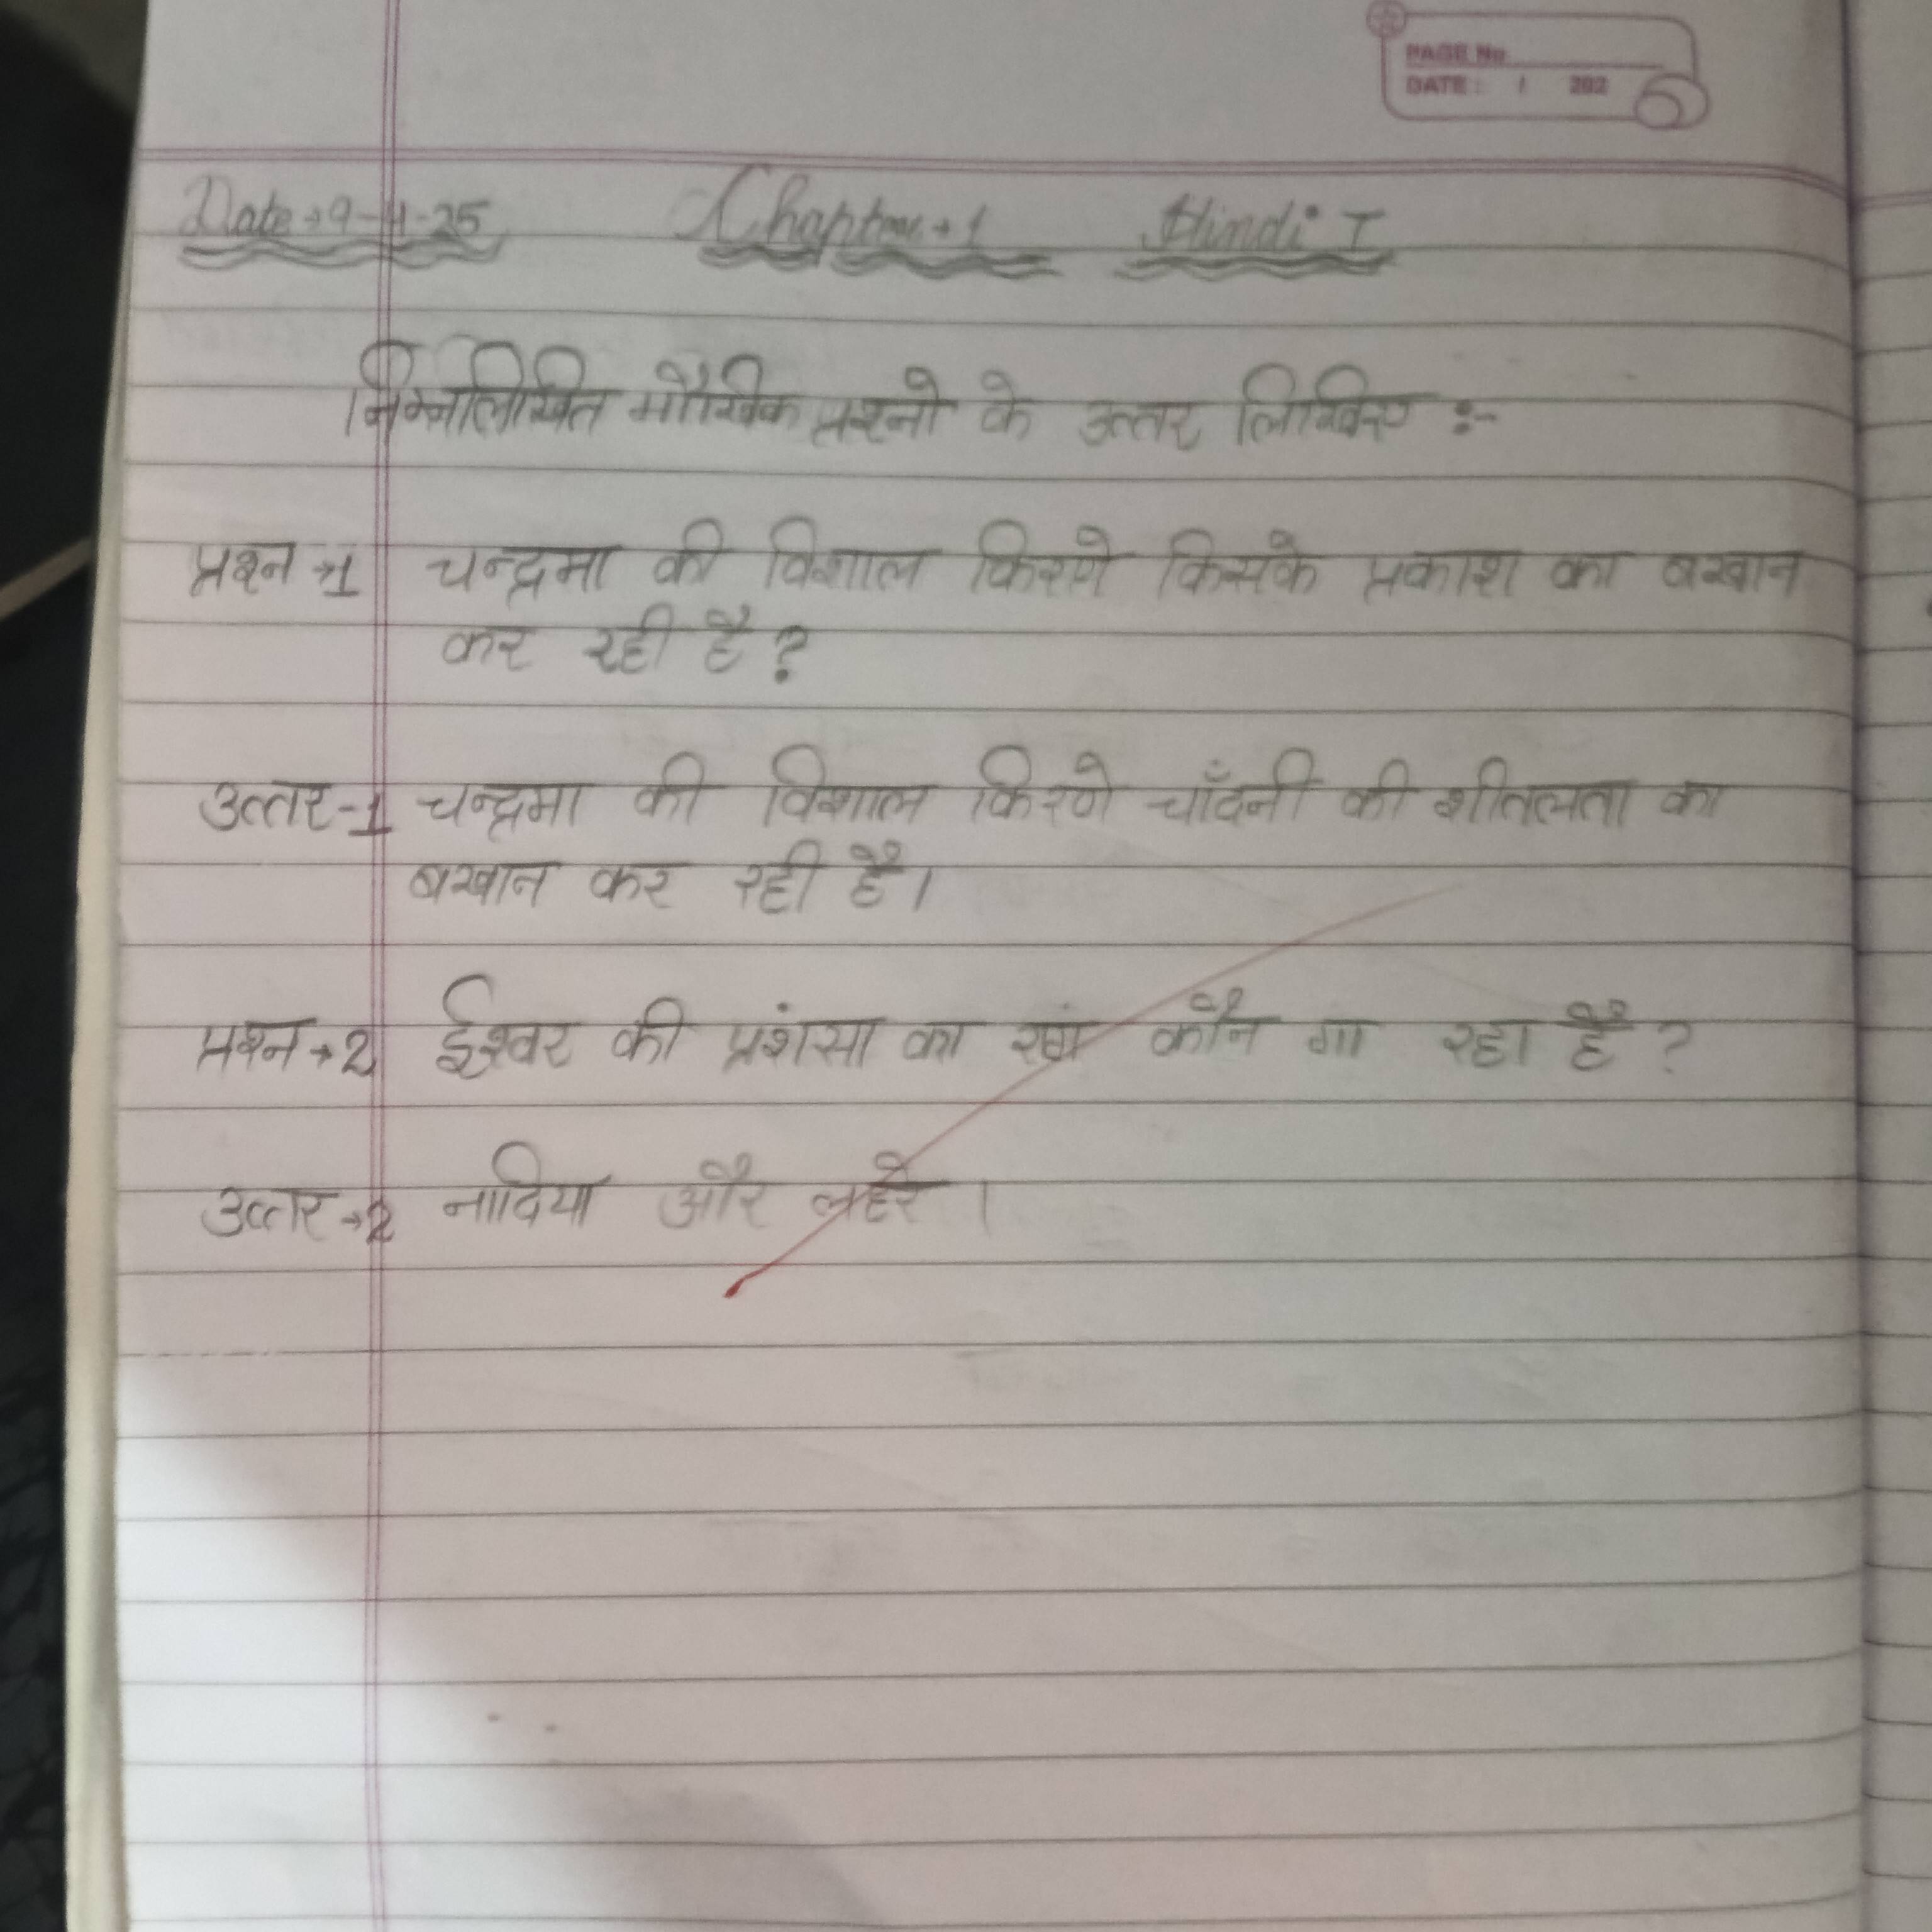 PAGE No
DATE : / 202
Date→9-4-25 Chapter→1 Hindi I
निम्नलिखित मौखिक प्रश्नो के उत्तर लिखिए :-
प्रश्न→1 चन्द्रमा की विशाल किरणे किसके प्रकाश का बखान
कर रही है ?
उत्तर-1 चन्द्रमा की विशाल किरणे चाँदनी की शीतलता का
बखान कर रही है।
प्रश्न→2 ईश्वर की प्रशंसा का कौन गा रहा है ?
उत्तर→2 नादिया और लहरे ।